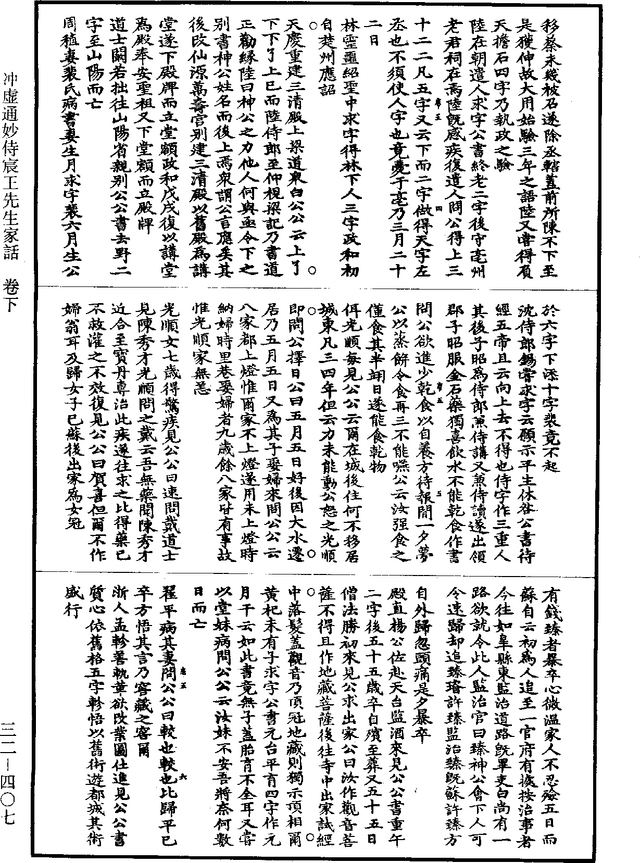 移蔡未幾被召遂除丞轄蓋前所陳不下至
是獲伸故大用始驗三年之語陸又嘗得須
天擔石四字乃執政之驗
陸在朝遣人求字公書終老二字後守亳州
老君祠在焉陸旣感疾復遣人問公得上三
十二二凡五字又云下而二字做得天字左
丞也不須使人字也竟薨于亳乃三月二十
二日
林靈蘁紹聖中求字得林下人三字政和初
自楚州應詔
天慶重建三清殿上梁道衆白公公云上了
下下了上巳而陸侍郎至仰視梁記乃書道
正勸緣陸曰神公之力他人何與亟令下之
別書神公姓名而後上焉衆謂公言應矣其
後改仙源萬壽宮別建三清殿以舊殿為講
堂遂下殿牌而立堂額政和戊戌復以講堂
為殿奉安聖祖又下堂額而立殿牌
道士闕若拙往山陽省親別公公書去野二
字至山陽而亡
周穜妻裴氏病書妻生月求字裴六月生公
於六字下添十字裴竟不起
沈侍郎錫嘗求字云願示平生休咎公書待
經五帝且云向上去不得也侍字作三重人
其後子昭為侍郎兼侍講又兼侍讀遂出領
郡子昭服金石藥獨喜飲水不能乾食作書
問公欲進少乾食以自養方待報間一夕夢
公以蒸餅令食再三不能嚥公云汝强食之
僅食其半翊日遂能食乾物
侔光順每見公公云爾在城後住何不移居
城東凡三四年但云力未能動公怒之光順
即問公擇日公曰五月五日好後因大水遷
居乃五月五日又為其子娶婦來問公公云
八家都上燈惟爾家不上燈遂用未上燈時
納婦時里巷娶婦者九歲餘八家皆有事故
惟光順家無恙
光順女七歲得驚疾見公公曰速問戴道士
見陳秀才光順問之戴云吾無藥聞陳秀才
近合至寶丹專治此疾遂往求之比得藥已
不救灌之不效復見公公曰賀喜但爾不作
婦翁耳及歸女子已蘇後出家為女冠
有錢臻者暴卒心微溫家人不忍殮五日而
蘇自云初為人追至一官府有據按治事者
今往如阜縣東監治道路旣畢吏白尚有一
路欲就令此人監治官曰臻神公會下人可
令速歸却追臻瑃許臻監治臻旣蘇許臻方
自外歸忽頭痛是夕暴卒
殿直楊公佐赴天台監酒來見公公書重午
二字後五十五歲卒自殯至葬又五十五日
僧法勝初來見公求出家公曰汝作觀音菩
薩不得且作地藏菩薩後往寺中出家試經
中落髮蓋觀音乃頂冠地藏則獨示頂相爾
黃杞未有子求字公書元台平育四字作元
月干云如此書竟無子蓋胎育不全耳又嘗
以堂妹病問公公云汝妹不安吾將奈何數
日而亡
程平病其妻問公公曰較也較也比歸平已
卒方悟其言乃窖藏之窖爾
浙人孟軫善軌革欲改業圖仕進見公公書
質心依舊格五字軫悟以舊術遊都城其術
盛行
冲虛通妙侍宸王先生家話 卷下
三二—四〇七